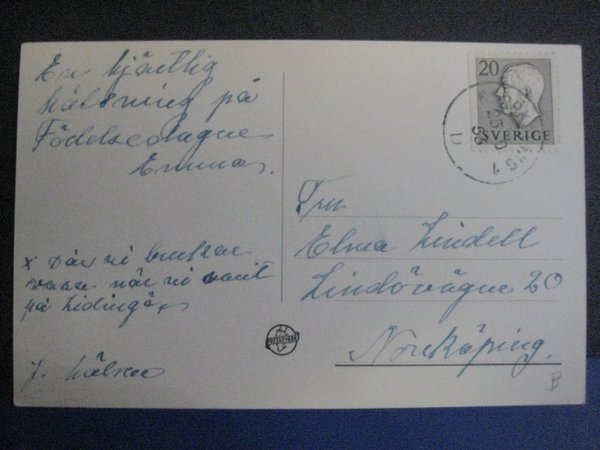 En hjärtlig
hälsning på
Födelsedagen
Emma.
x Där ni brukar
vara när ni varit
på Lidingö x
J. hälsar
20
SVERIGE
25
53
Fru
Elna Lindell
Lindövägen 20
Norrköping.
B